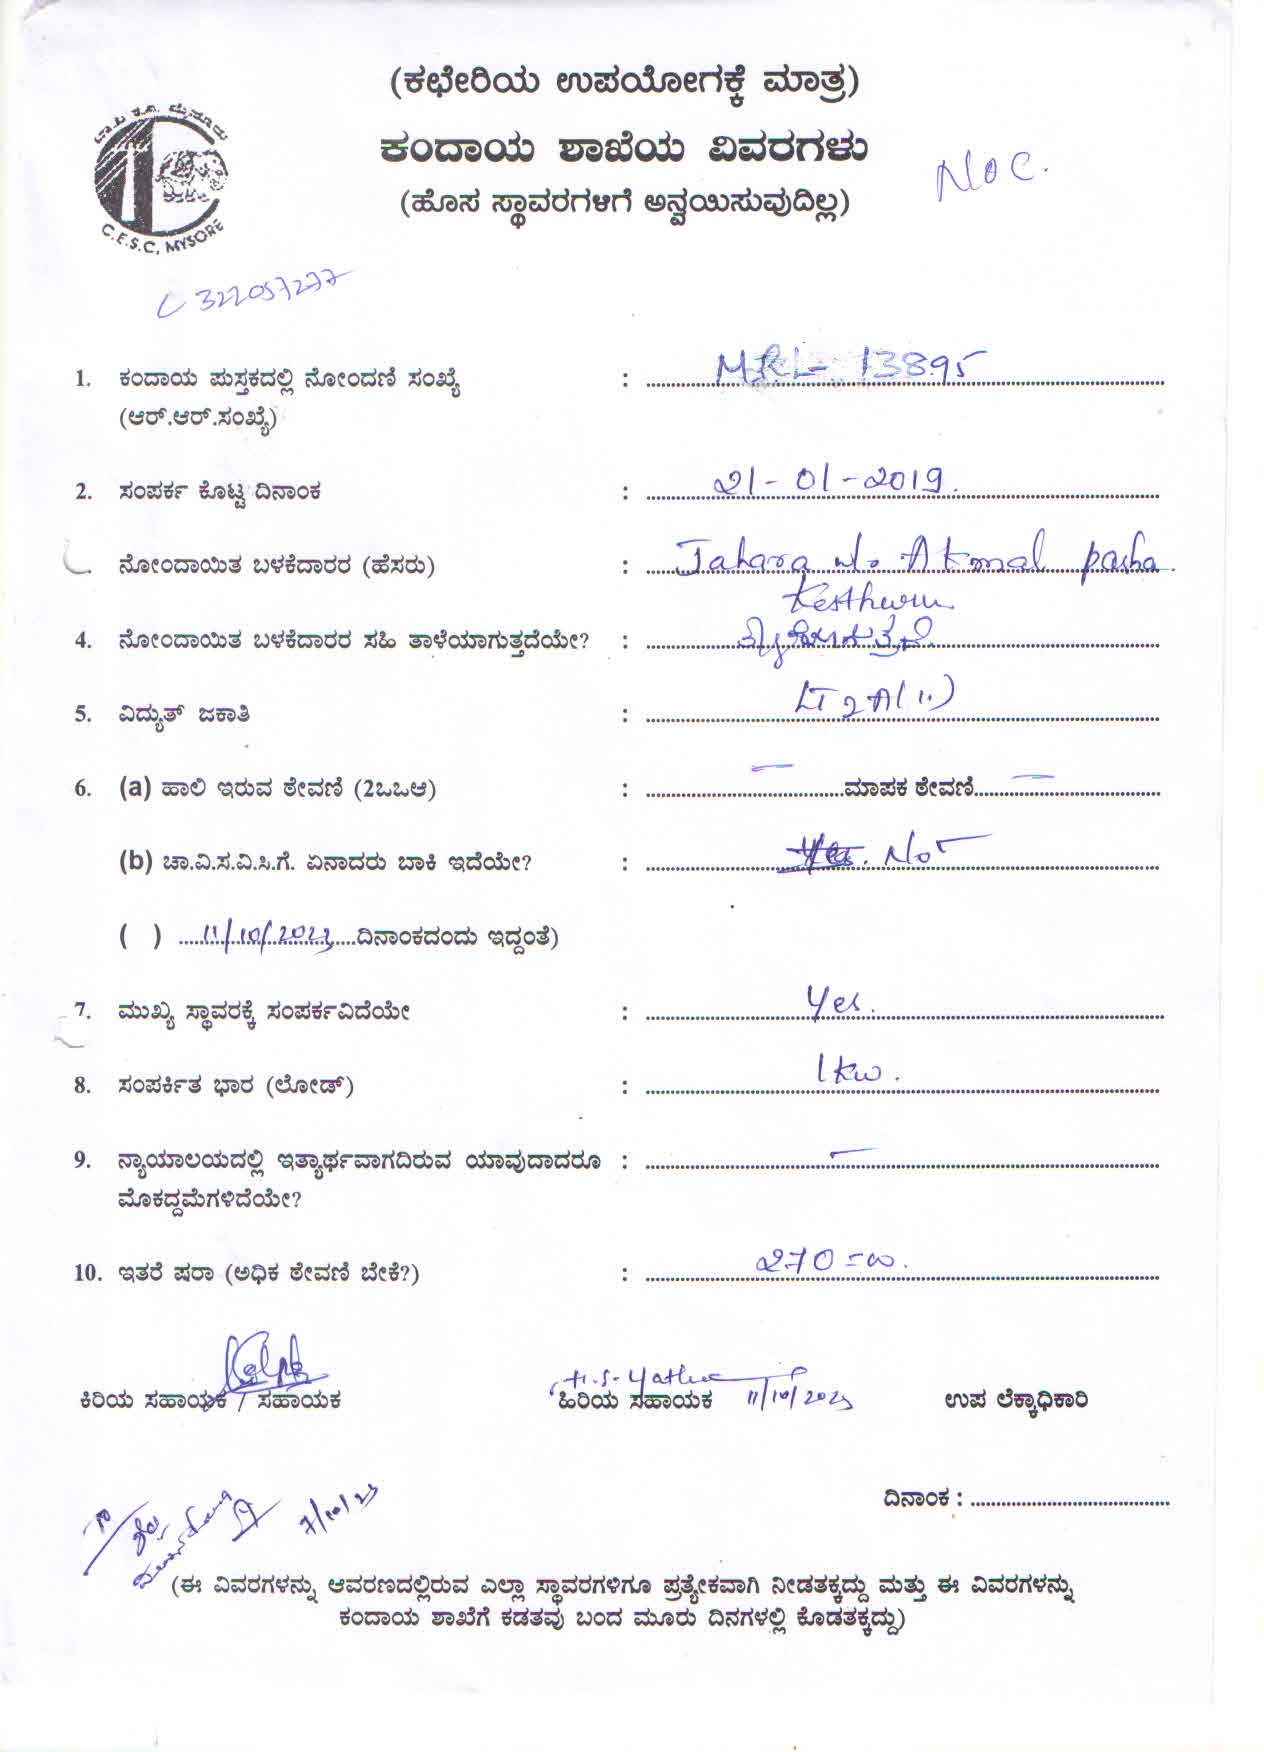 (ಕಛೇರಿಯ ಉಪಯೋಗಕ್ಕೆ ಮಾತ್ರ)
ಕಂದಾಯ ಶಾಖೆಯ ವಿವರಗಳು
NOC.
(ಹೊಸ ಸ್ಥಾವರಗಳಿಗೆ ಅನ್ವಯಿಸುವುದಿಲ್ಲ)
C.E.S.C, MYSORE
1. ಕಂದಾಯ ಪುಸ್ತಕದಲ್ಲಿ ನೋಂದಣಿ ಸಂಖ್ಯೆ : 13895
(ಆರ್.ಆರ್.ಸಂಖ್ಯೆ)
2. ಸಂಪರ್ಕ ಕೊಟ್ಟ ದಿನಾಂಕ : 21-01-2019.
ನೋಂದಾಯಿತ ಬಳಕೆದಾರರ (ಹೆಸರು) : Tahara w/o Akmal pasha
4. ನೋಂದಾಯಿತ ಬಳಕೆದಾರರ ಸಹಿ ತಾಳೆಯಾಗುತ್ತದೆಯೇ? :
5. ವಿದ್ಯುತ್ ಜಕಾತಿ : LT2A(ii)
6. (a) ಹಾಲಿ ಇರುವ ಠೇವಣಿ (2ಒಒಆ) : — ಮಾಪಕ ಠೇವಣಿ —
(b) ಚಾ.ವಿ.ಸ.ವಿ.ಸಿ.ಗೆ. ಏನಾದರು ಬಾಕಿ ಇದೆಯೇ? : No
( ) 11/10/2023 ದಿನಾಂಕದಂದು ಇದ್ದಂತೆ)
7. ಮುಖ್ಯ ಸ್ಥಾವರಕ್ಕೆ ಸಂಪರ್ಕವಿದೆಯೇ : Yes.
8. ಸಂಪರ್ಕಿತ ಭಾರ (ಲೋಡ್) : 1kw.
9. ನ್ಯಾಯಾಲಯದಲ್ಲಿ ಇತ್ಯಾರ್ಥವಾಗದಿರುವ ಯಾವುದಾದರೂ : —
ಮೊಕದ್ದಮೆಗಳಿದೆಯೇ?
10. ಇತರೆ ಷರಾ (ಅಧಿಕ ಠೇವಣಿ ಬೇಕೆ?) : 270=00.
ಕಿರಿಯ ಸಹಾಯಕ / ಸಹಾಯಕ ಹಿರಿಯ ಸಹಾಯಕ 11/10/2023 ಉಪ ಲೆಕ್ಕಾಧಿಕಾರಿ
ದಿನಾಂಕ :
7/10/23
(ಈ ವಿವರಗಳನ್ನು ಆವರಣದಲ್ಲಿರುವ ಎಲ್ಲಾ ಸ್ಥಾವರಗಳಿಗೂ ಪ್ರತ್ಯೇಕವಾಗಿ ನೀಡತಕ್ಕದ್ದು ಮತ್ತು ಈ ವಿವರಗಳನ್ನು
ಕಂದಾಯ ಶಾಖೆಗೆ ಕಡತವು ಬಂದ ಮೂರು ದಿನಗಳಲ್ಲಿ ಕೊಡತಕ್ಕದ್ದು)